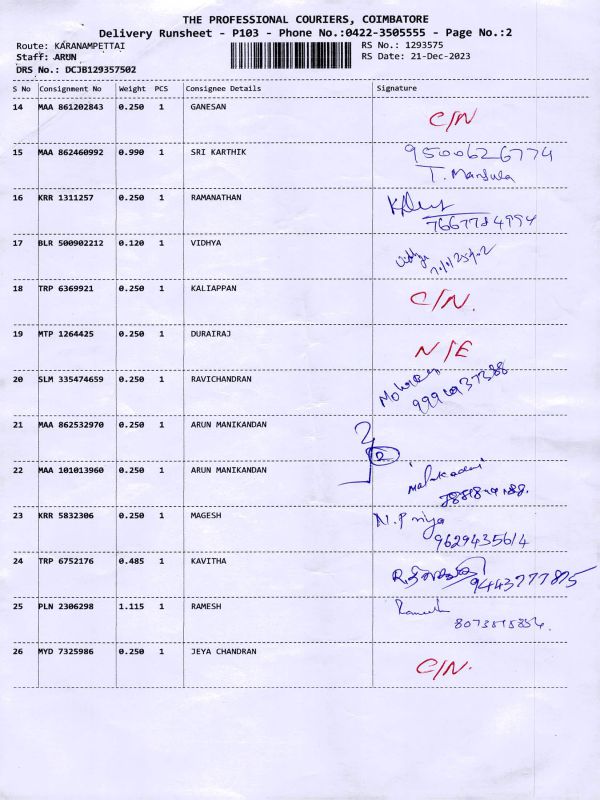 THE PROFESSIONAL COURIERS, COIMBATORE
Delivery Runsheet - P103 - Phone No.:0422-3505555 - Page No.:2
Route: KARANAMPETTAI RS No.: 1293575
Staff: ARUN RS Date: 21-Dec-2023
DRS No.: DCJB129357502
S No Consignment No Weight PCS Consignee Details Signature
14 MAA 861202843 0.250 1 GANESAN C/N
15 MAA 862460992 0.990 1 SRI KARTHIK 9500626774
T. Manjula
16 KRR 1311257 0.250 1 RAMANATHAN
7667784994
17 BLR 500902212 0.120 1 VIDHYA Vidhya
18 TRP 6369921 0.250 1 KALIAPPAN C/N.
19 MTP 1264425 0.250 1 DURAIRAJ N/E
20 SLM 335474659 0.250 1 RAVICHANDRAN
21 MAA 862532970 0.250 1 ARUN MANIKANDAN
2
22 MAA 101013960 0.250 1 ARUN MANIKANDAN
23 KRR 5832306 0.250 1 MAGESH N.Priya
9629435614
24 TRP 6752176 0.485 1 KAVITHA
25 PLN 2306298 1.115 1 RAMESH Ramesh
26 MYD 7325986 0.250 1 JEYA CHANDRAN C/N.